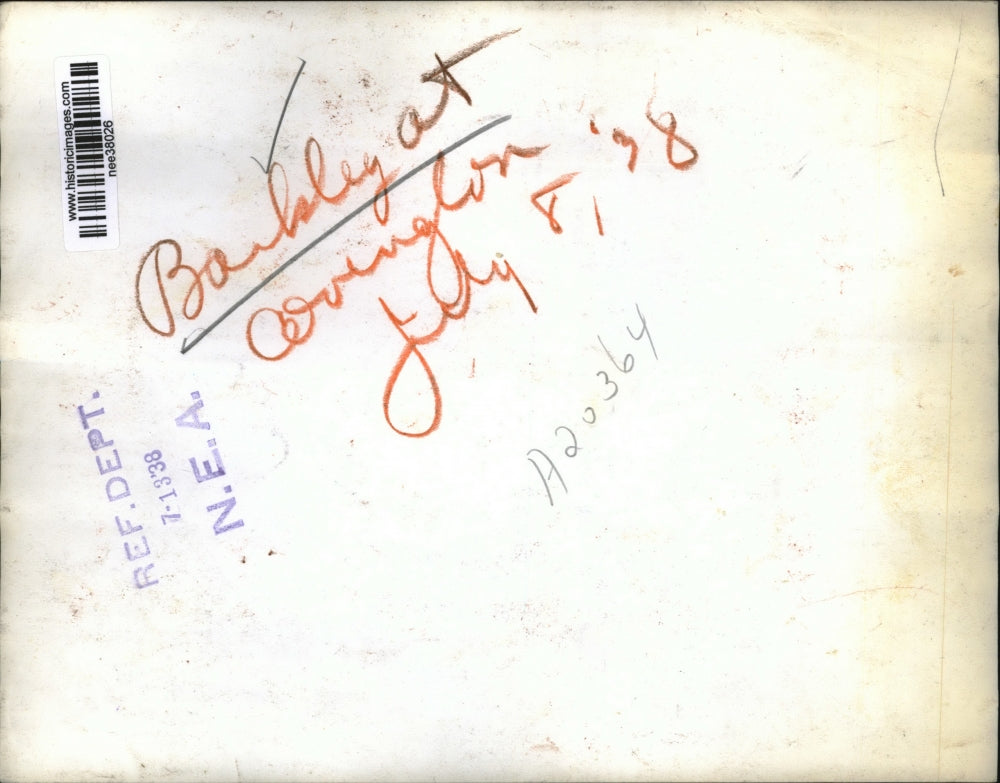 www.historicimages.com
nee38026
Barkley at
Covington
July 8, '38
REF. DEPT.
7-13-38
N.E.A.
A20364